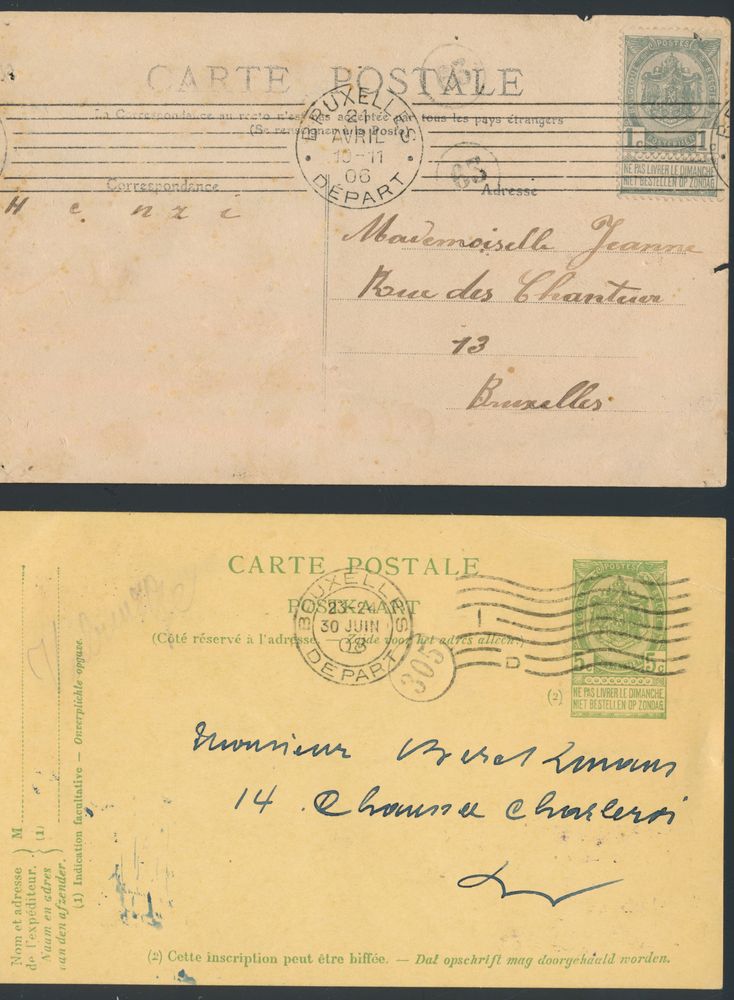 CARTE POSTALE
La Correspondance au recto n'est pas acceptée par tous les pays étrangers
(Se renseigner à la Poste)
BRUXELLES
21
AVRIL
10-11
06
DÉPART
65
65
POSTES
1c 1c
NE PAS LIVRER LE DIMANCHE
NIET BESTELLEN OP ZONDAG
Correspondance
Adresse
Henzi
Mademoiselle Jeanne
Rue des
13
Bruxelles
CARTE POSTALE
POSTKAART
(Côté réservé à l'adresse. — Zijde voor het adres alleen.)
BRUXELLES
23-24
30 JUIN
08
DÉPART
305
1
D
POSTES
5c 5c
(2)
NE PAS LIVRER LE DIMANCHE
NIET BESTELLEN OP ZONDAG
Monsieur
14. Chaussée Charleroi
Nom et adresse
de l'expéditeur.
Naam en adres
van den afzender.
M
(1)
(1) Indication facultative — Onverplichte opgave.
(2) Cette inscription peut être biffée. — Dat opschrift mag doorgehaald worden.